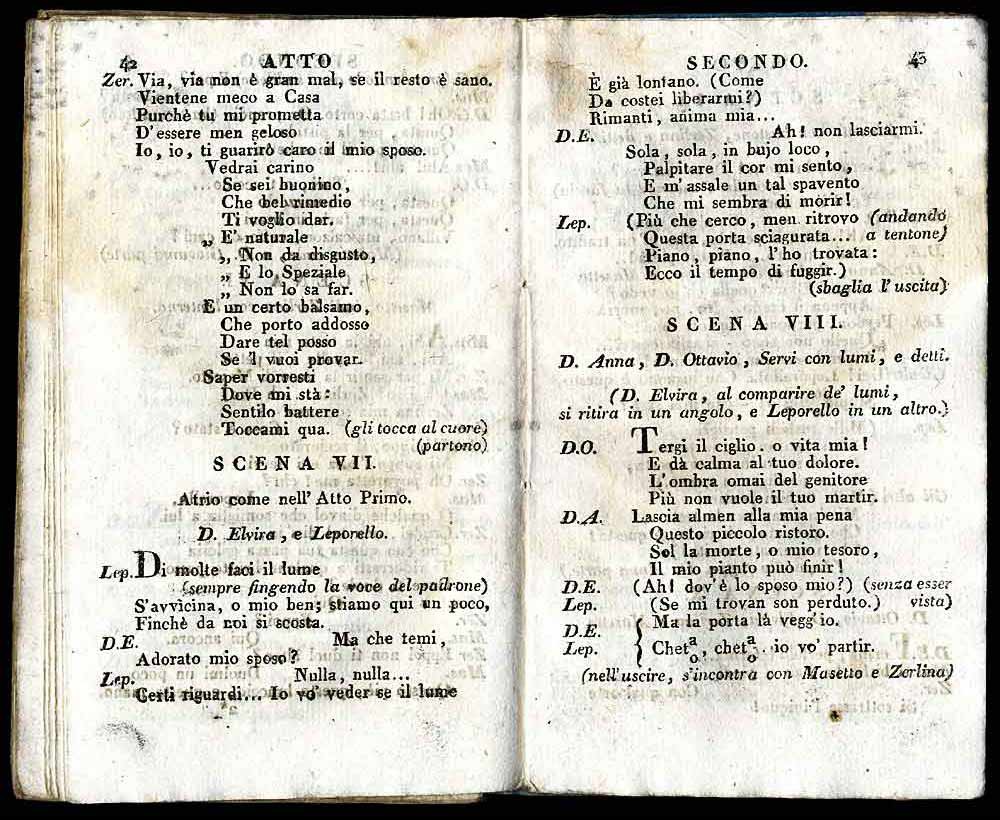 42 ATTO
Zer. Via, via non è gran mal, se il resto è sano.
Vientene meco a Casa
Purchè tu mi prometta
D'essere men geloso
Io, io, ti guarirò caro il mio sposo.
Vedrai carino
Se sei buonino,
Che bel rimedio
Ti voglio dar.
„ E' naturale
„ Non da disgusto,
„ E lo Speziale
„ Non lo sa far.
E un certo balsamo,
Che porto addosso
Dare tel posso
Se 'l vuoi provar.
Saper vorresti
Dove mi stà:
Sentilo battere
Toccami qua. (gli tocca al cuore)
(partono)
SCENA VII.
Atrio come nell' Atto Primo.
D. Elvira, e Leporello.
Lep. Di molte faci il lume
(sempre fingendo la voce del padrone)
S'avvicina, o mio ben; stiamo qui un poco,
Finchè da noi si scosta.
D.E. Ma che temi,
Adorato mio sposo?
Lep. Nulla, nulla...
Certi riguardi... Io vo' veder se il lume
SECONDO. 43
È già lontano. (Come
Da costei liberarmi?)
Rimanti, anima mia...
D.E. Ah! non lasciarmi.
Sola, sola, in bujo loco,
Palpitare il cor mi sento,
E m' assale un tal spavento
Che mi sembra di morir!
Lep. (Più che cerco, men ritrovo (andando
Questa porta sciagurata... a tentone)
Piano, piano, l' ho trovata:
Ecco il tempo di fuggir.)
(sbaglia l' uscita)
SCENA VIII.
D. Anna, D. Ottavio, Servi con lumi, e detti.
(D. Elvira, al comparire de' lumi,
si ritira in un angolo, e Leporello in un altro.)
D.O. Tergi il ciglio. o vita mia!
E dà calma al tuo dolore.
L' ombra omai del genitore
Più non vuole il tuo martir.
D.A. Lascia almen alla mia pena
Questo piccolo ristoro.
Sol la morte, o mio tesoro,
Il mio pianto può finir!
D.E. (Ah! dov' è lo sposo mio?) (senza esser
Lep. (Se mi trovan son perduto.) vista)
D.E. Ma la porta là vegg' io.
Lep. Chet a/o, chet a/o. io vo' partir.
(nell' uscire, s'incontra con Masetto e Zerlina)